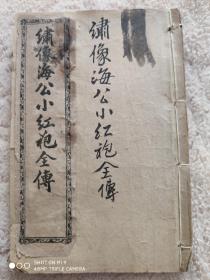 繡像海公小紅袍全傳
繡像海公小紅袍全傳
SHOT ON MI 9
48MP TRIPLE CAMERA